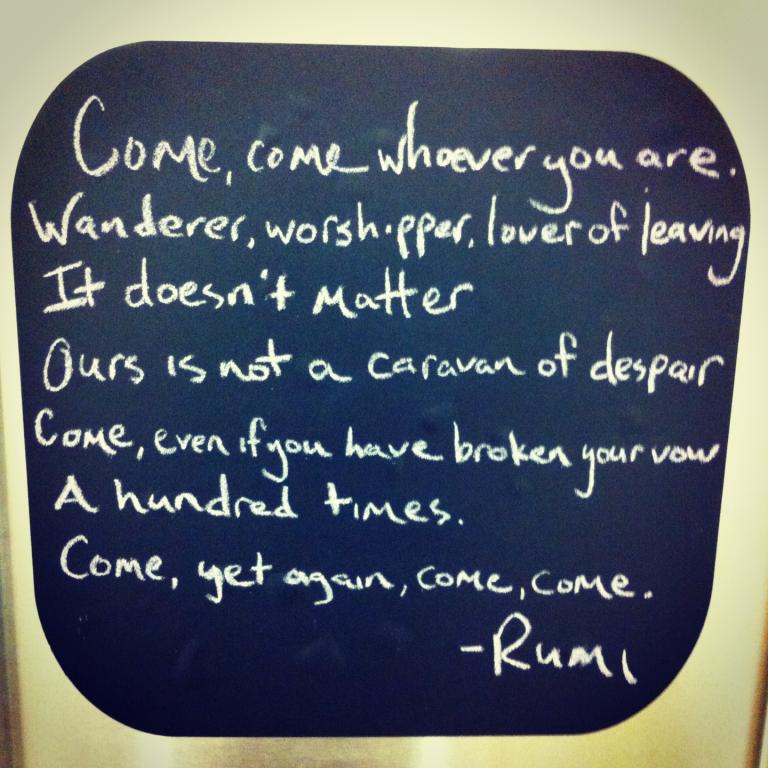 Come, come whoever you are.
Wanderer, worshipper, lover of leaving
It doesn't matter
Ours is not a caravan of despair
Come, even if you have broken your vow
A hundred times.
Come, yet again, come, come.
-Rumi